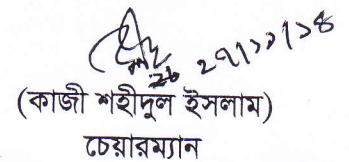 ২৭/১১/১৪
(কাজী শহীদুল ইসলাম)
চেয়ারম্যান